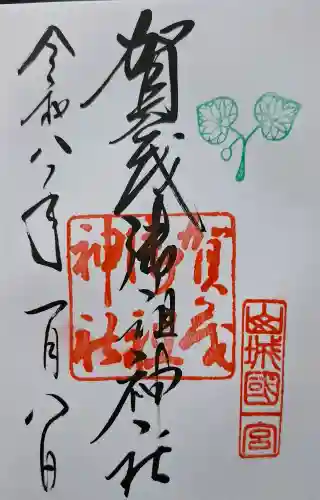 山城國一宮
賀茂御祖神社
賀茂御祖神社
令和八年一月八日